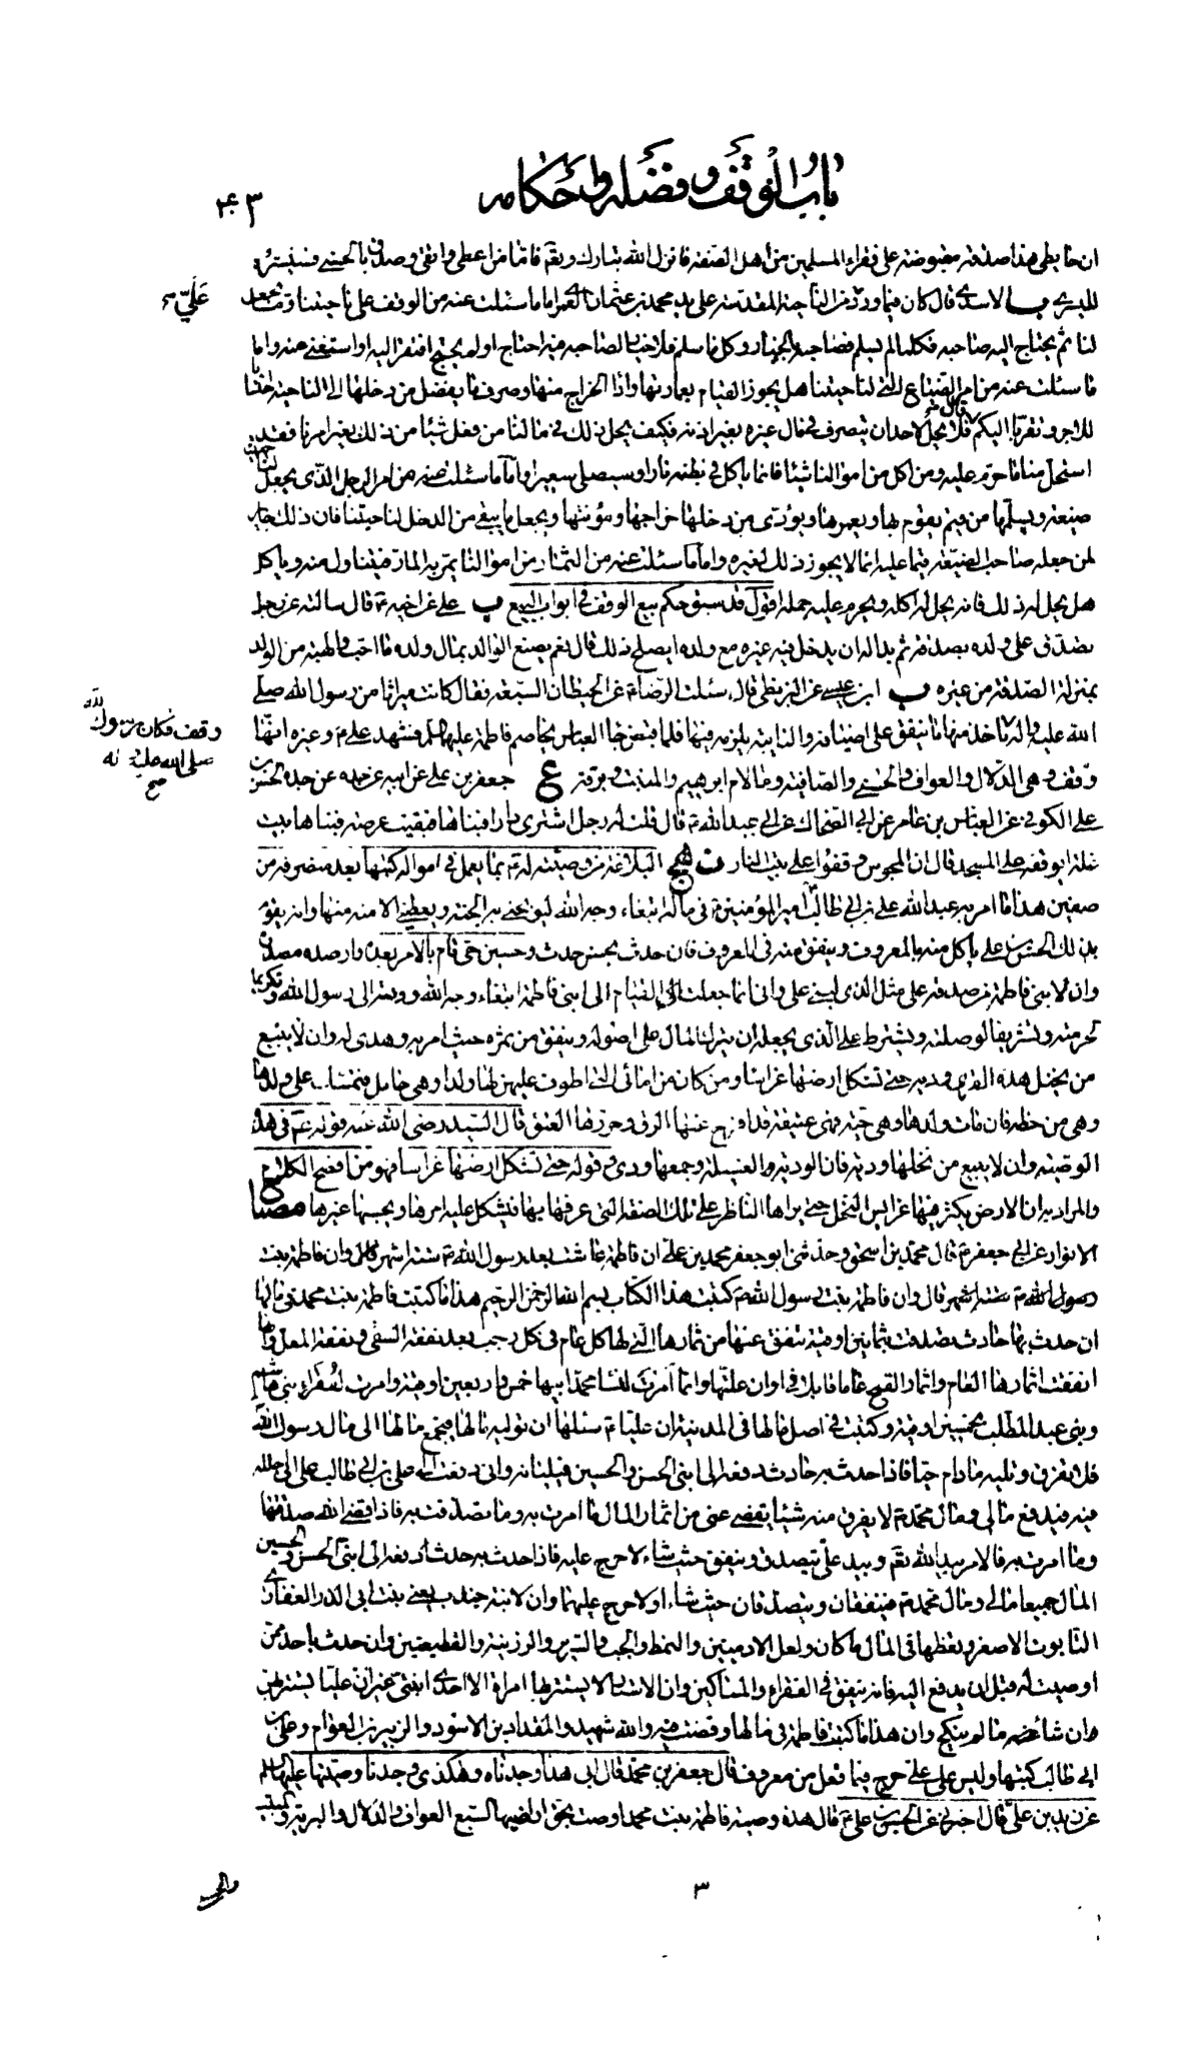 باب الوقف وفضله واحكامه
۴۳
ان حائطى هذا صدقة مقبوضة على فقراء المسلمين من اهل الصفة فانزل الله تبارك وتعم فاما من اعطى واتقى وصدق بالحسنى فسنيسره
لليسرى الاسدى قال كان فيما ورد من الناحية المقدسة على يد محمد بن عثمان العمرى اما ما سئلت عنه من الوقف على ناحيتنا وما يجعل
على
لنا ثم يحتاج اليه صاحبه فكلما لم يسلم فصاحبه بالخيار وكل ما سلم فلا خيار لصاحبه فيه احتاج اولم يحتج افتقر اليه او استغنى عنه واما
ما سئلت عنه من امر الضياع التى لناحيتنا هل يجوز القيام بعمارتها واداء الخراج منها وصرف ما يفضل من دخلها الى الناحية احتسابا
للاجر وتقربا اليكم فلا يحل لاحد ان يتصرف فى مال غيره بغير اذنه فكيف يحل ذلك فى مالنا من فعل شيئا من ذلك بغير امرنا فقد
استحل منا ما حرم عليه ومن اكل من اموالنا شيئا فانما ياكل فى بطنه نارا وسيصلى سعيرا واما ما سئلت عنه من امر الرجل الذى يجعل لناحيتنا
ضيعة ويسلمها من قيم يقوم بها ويعمرها ويؤدى من دخلها خراجها ومؤنتها ويجعل ما يبقى من الدخل لناحيتنا فان ذلك جايز
لمن جعله صاحب الضيعة قيما عليه انما لا يجوز ذلك لغيره واما ما سئلت عنه من الثمار من اموالنا يمر به المار فيتناول منه وياكل
هل يحل له ذلك فانه يحل له اكله ويحرم عليه حمله اقول قد سبق حكم بيع الوقف فى ابواب البيع ب على عن اخيه ع قال سالته عن رجل
تصدق على ولده بصدقة ثم بدا له ان يدخل فيه غيره مع ولده ايصلح ذلك قال نعم يصنع الوالد بمال ولده ما احب والهبة من الولد
بمنزلة الصدقة من غيره ب ابن عيسى عن البزنطى قال سئلت الرضا ع عن الحيطان السبعة فقال كانت ميراثا من رسول الله صلى
وقف فكان رسول الله
صلى الله عليه وآله
صح
الله عليه واله ياخذ منها ما ينفق على اضيافه والنايبة يلزمه فيها فلما قبض جاء العباس يخاصم فاطمة عليها السلم فشهد على ع وغيره انها
وقف وهى الدلال والعواف والحسنى والصافية وما لام ابرهيم والمبيت وبرقة ع جعفر بن على عن ابيه عن جده عن جده الحسن بن
على الكوفى عن العباس بن عامر عن ابى الضحاك عن ابى عبد الله ع قال قلت له رجل اشترى دارا فبناها فبقيت عرصة فبناها بيت
غلة ايوقفه على المسجد قال ان المجوس وقفوا على بيت النار نهج البلاغة من وصيته له ع بما يعمل فى امواله كتبها بعد منصرفه من
صفين هذا ما امر به عبد الله على بن ابى طالب امير المؤمنين فى ماله ابتغاء وجه الله ليولجنى به الجنة ويعطينى الامنة منها وانه يقوم
بذلك الحسن بن على ياكل منه بالمعروف وينفق منه فى المعروف فان حدث بحسن حدث وحسين حى قام بالامر بعده واصدره مصدره
وان لابنى فاطمة من صدقة على مثل الذى لبنى على وانى انما جعلت القيام الى ابنى فاطمة ابتغاء وجه الله وقربة الى رسول الله وتكريما
لحرمته وتشريفا لوصلته ويشترط على الذى يجعله ان يترك المال على اصوله وينفق من ثمره حيث امر به وهدى له وان لا يبيع
من نخيل هذه القرى ودية حتى تشكل ارضها غراسا ومن كان من امائى التى اطوف عليهن لها ولد او هى حامل فتمسك على ولدها
وهى من حظه فان مات ولدها وهى حية فهى عتيقة قد افرج عنها الرق وحررها العتق قال السيد رضى الله عنه قوله ع فى هذه
الوصية وان لا يبيع من نخلها ودية فان الودية الفسيلة وجمعها ودى وقوله حتى تشكل ارضها غراسا فهو من افصح الكلام
والمراد به ان الارض يكثر فيها غراس النخل حتى يراها الناظر على تلك الصفة التى عرفها بها فيشكل عليه امرها ويحسبها غيرها مصباح
الانوار عن ابى جعفر ع قال محمد بن اسحق وحدثنى ابو جعفر محمد بن على ان فاطمة عاشت بعد رسول الله ص ستة اشهر قال وان فاطمة بنت
رسول الله ص ستة اشهر قال وان فاطمة بنت رسول الله ص كتبت هذا الكتاب بسم الله الرحمن الرحيم هذا ما كتبت فاطمة بنت محمد فى مالها
ان حدث بها حادث تصدقت بثمانين اوقية تنفق عنها من ثمارها التى لها كل عام فى كل رجب بعد نفقة السقى ونفقة المغل وانها
انفقت اثمارها العام واثمار القمح عاما قابلا فى اوان غلتها وانما امرت لنساء محمد ابيها خمس واربعين اوقية وامرت لفقراء بنى هاشم
وبنى عبد المطلب بخمسين اوقية وكتبت فى اصل مالها فى المدينة ان عليا ع سئلها ان توليه مالها فيجمع مالها الى مال رسول الله
فلا تفرق وتليه ما دام حيا فاذا حدث به حادث دفعه الى ابنى الحسن والحسين فيليانه وانى دفعت الى على بن ابى طالب على انى احلله
فيه فيدفع مالى ومال محمد ص لا يفرق منه شيئا يقضى عنى من اثمار المال ما امرت به وما تصدقت به فاذا قضى الله صدقتها
وما امرت به فالامر بيد الله تعم وبيد على يتصدق وينفق حيث شاء لا حرج عليه فاذا حدث به حدث دفعه الى ابنى الحسن والحسين
المال جميعا مالى ومال محمد ص فينفقان ويتصدقان حيث شاءا ولا حرج عليهما وان لابنة جندب يعنى بنت ابى الذر الغفارى
التابوت الاصغر وتعطها فى المال ما كان ونعلى الادميين والنمط والجب والسرير والزريية والقطيفتين وان حدث باحد ممن
اوصيت له قبل ان يدفع اليه فانه ينفق فى الفقراء والمساكين وان الاستار لا يستتر بها امراة الا احدى ابنتى غير ان عليا يستتر بهن
ان شاء ما لم ينكح وان هذا ما كتبت فاطمة فى مالها وقضت فيه والله شهيد والمقداد بن الاسود والزبير بن العوام وعلى بن
ابى طالب كتبها وليس على على حرج فيما فعل من معروف قال جعفر بن محمد قال ابى هذا وجدناه وهكذى وجدنا وصيتها عليها السلم
عن زيد بن على قال اخبرنى عن الحسن بن على ع قال هذه وصية فاطمة بنت محمد اوصت بحوائطها السبع العواف والدلال والبرقة والمبيت
۳
والحسنى